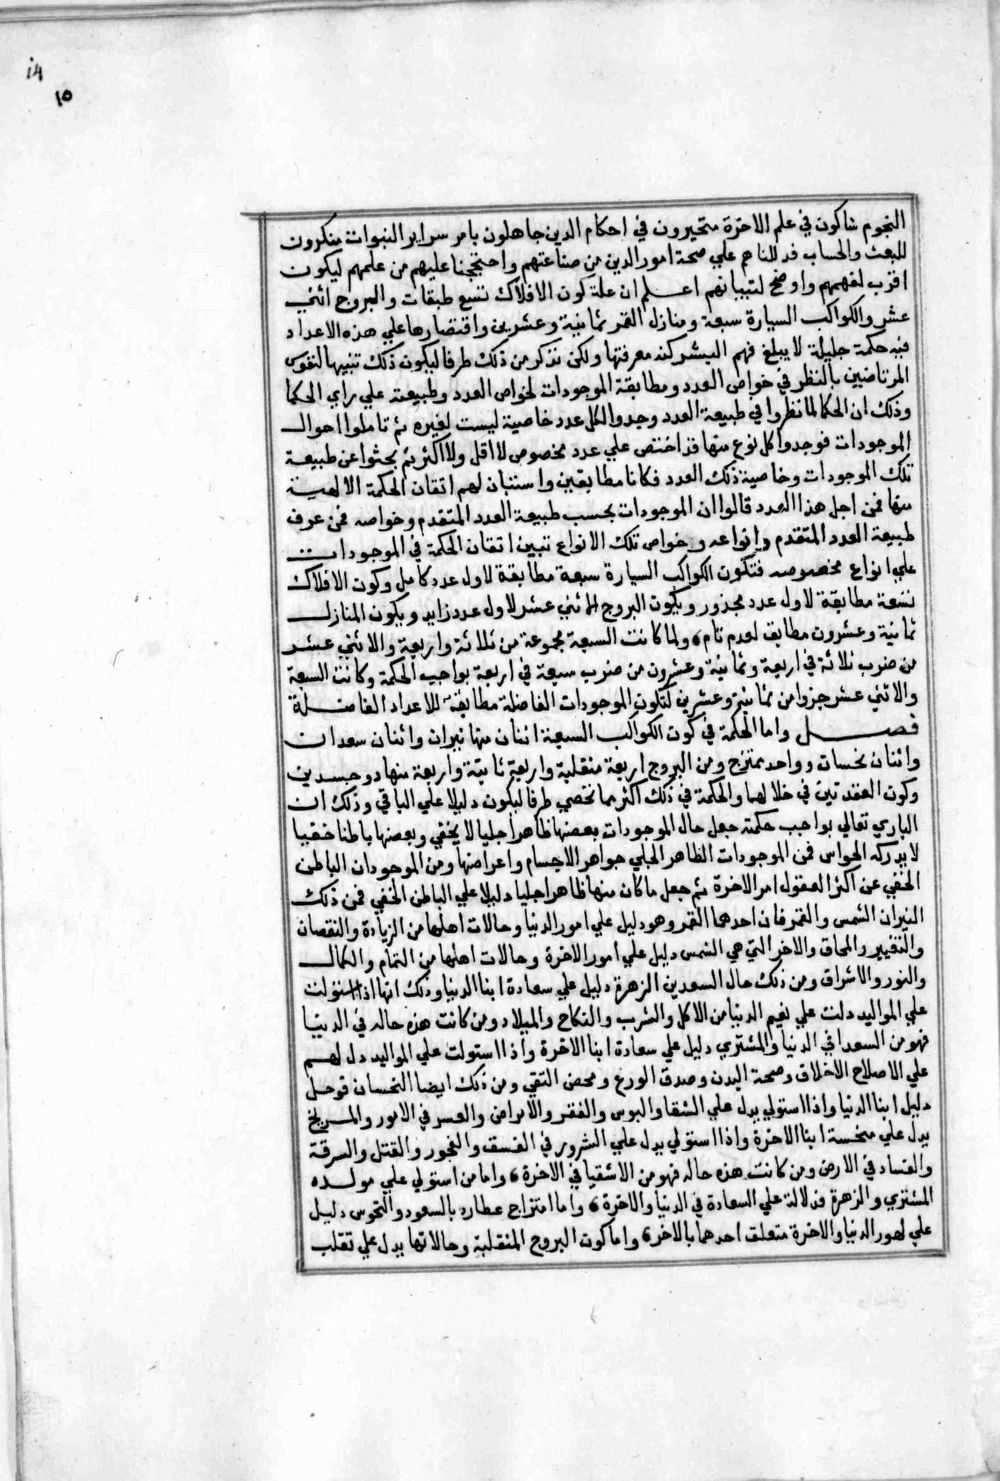 i4
١٥
النجوم شاكون في علم الاخرة متحيرون في احكام الدين جاهلون بامر سراير النبوات منكرون
للبعث والحساب فدللناهم علي صحة امور الدين من صناعتهم واحتججنا عليهم من علمهم ليكون
اقرب لفهمهم واوضح لتبيانهم اعلم ان علة كون الافلاك تسع طبقات والبروج اثني
عشر والكواكب السيارة سبعة ومنازل القمر ثمانية وعشرين واقتصارها علي هذه الاعداد
فيه حكمة جليلة لا يبلغ فهم البشر كنه معرفتها ولكن نذكر من ذلك طرفا ليكون ذلك تنبيها لنفوس
المرتاضين بالنظر في خواص العدد ومطابقة الموجودات لخواص العدد وطبيعته علي راي الحكما
وذلك ان الحكما لما نظروا في طبيعة العدد وجدوا لكل عدد خاصية ليست لغيره ثم تاملوا احوال
الموجودات فوجدوا كل نوع منها قد اختص علي عدد مخصوص لا اقل ولا اكثر ثم بحثوا عن طبيعة
تلك الموجودات وخاصية ذلك العدد فكانا مطابقين واستبان لهم اتقان الحكمة الالهية
منها فمن اجل هذا العدد قالوا ان الموجودات بحسب طبيعة العدد المتقدم وخواصه فمن عرف
طبيعة العدد المتقدم وانواعه وخواص تلك الانواع تبين اتقان الحكمة في الموجودات
علي انواع مخصوصه فتكون الكواكب السيارة سبعة مطابقة لاول عدد كامل وكون الافلاك
تسعة مطابقة لاول عدد مجذور ويكون البروج اثني عشر لاول عدد زايد ويكون المنازل
ثمانية وعشرون مطابق لعدد تام، ولما كانت السبعة مجموعة من ثلاثة واربعة والاثني عشر
من ضرب ثلاثة في اربعة وثمانية وعشرون من ضرب سبعة في اربعة بواجب الحكمة وكانت السبعة
والاثني عشر جزوا من ثمانية وعشرين لتكون الموجودات الفاضلة مطابقة للاعداد الفاضلة
فصل واما الحكمة في كون الكواكب السبعة اثنان منها نيران واثنان سعدان
واثنان نحسان وواحد ممتزج ومن البروج اربعة منقلبة واربعة ثابتة واربعة منها ذو جسدين
وكون العقدتين في خلالهما والحكمة في ذلك اكثر مما نحصي طرفا ليكون دليلا علي الباقي وذلك ان
الباري تعالي بواجب حكمته جعل حال الموجودات بعضها ظاهرا جليا لا يخفي وبعضها باطنا خفيا
لا يدركه الحواس فمن الموجودات الظاهر الجلي جواهر الاجسام واعراضها ومن الموجودات الباطن
الخفي عن اكثر العقول امر الاخرة ثم جعل ما كان منها ظاهرا جليا دليلا علي الباطن الخفي فمن ذلك
النيران الشمس والقمر فان احدهما القمر وهو دليل علي امور الدنيا وحالات اهلها من الزيادة والنقصان
والتغيير والمحاق والاخر التي هي الشمس دليل علي امور الاخرة وحالات اهلها من التمام والكمال
والنور والاشراق ومن ذلك حال السعدين الزهرة دليل علي سعادة ابنا الدنيا وذلك انها اذا استولت
علي المواليد دلت علي نعيم الدنيا من الاكل والشرب والنكاح والميلاد ومن كانت هذه حاله في الدنيا
فهو من السعدا في الدنيا والمشتري دليل علي سعادة ابنا الاخرة واذا استولت علي المواليد دل لهم
علي الاصلاح الاخلاق وصحة البدن وصدق الورع ومحض التقي ومن ذلك ايضا النحسان فزحل
دليل ابنا الدنيا واذا استولي يدل علي الشقا والبوس والفقر والامراض والعسر في الامور والمريخ
يدل علي منحسة ابنا الاخرة واذا استولي يدل علي الشرور في الفسق والفجور والقتل والسرقة
والفساد في الارض ومن كانت هذه حاله فهو من الاشقيا في الاخرة، واما من استولي علي مولده
المشتري والزهرة فدلالة علي السعادة في الدنيا والاخرة، واما امتزاج عطارد بالسعود والنحوس دليل
علي امور الدنيا والاخرة متعلق احدهما بالاخر، واما كون البروج المنقلبة وحالاتها يدل علي تقلب